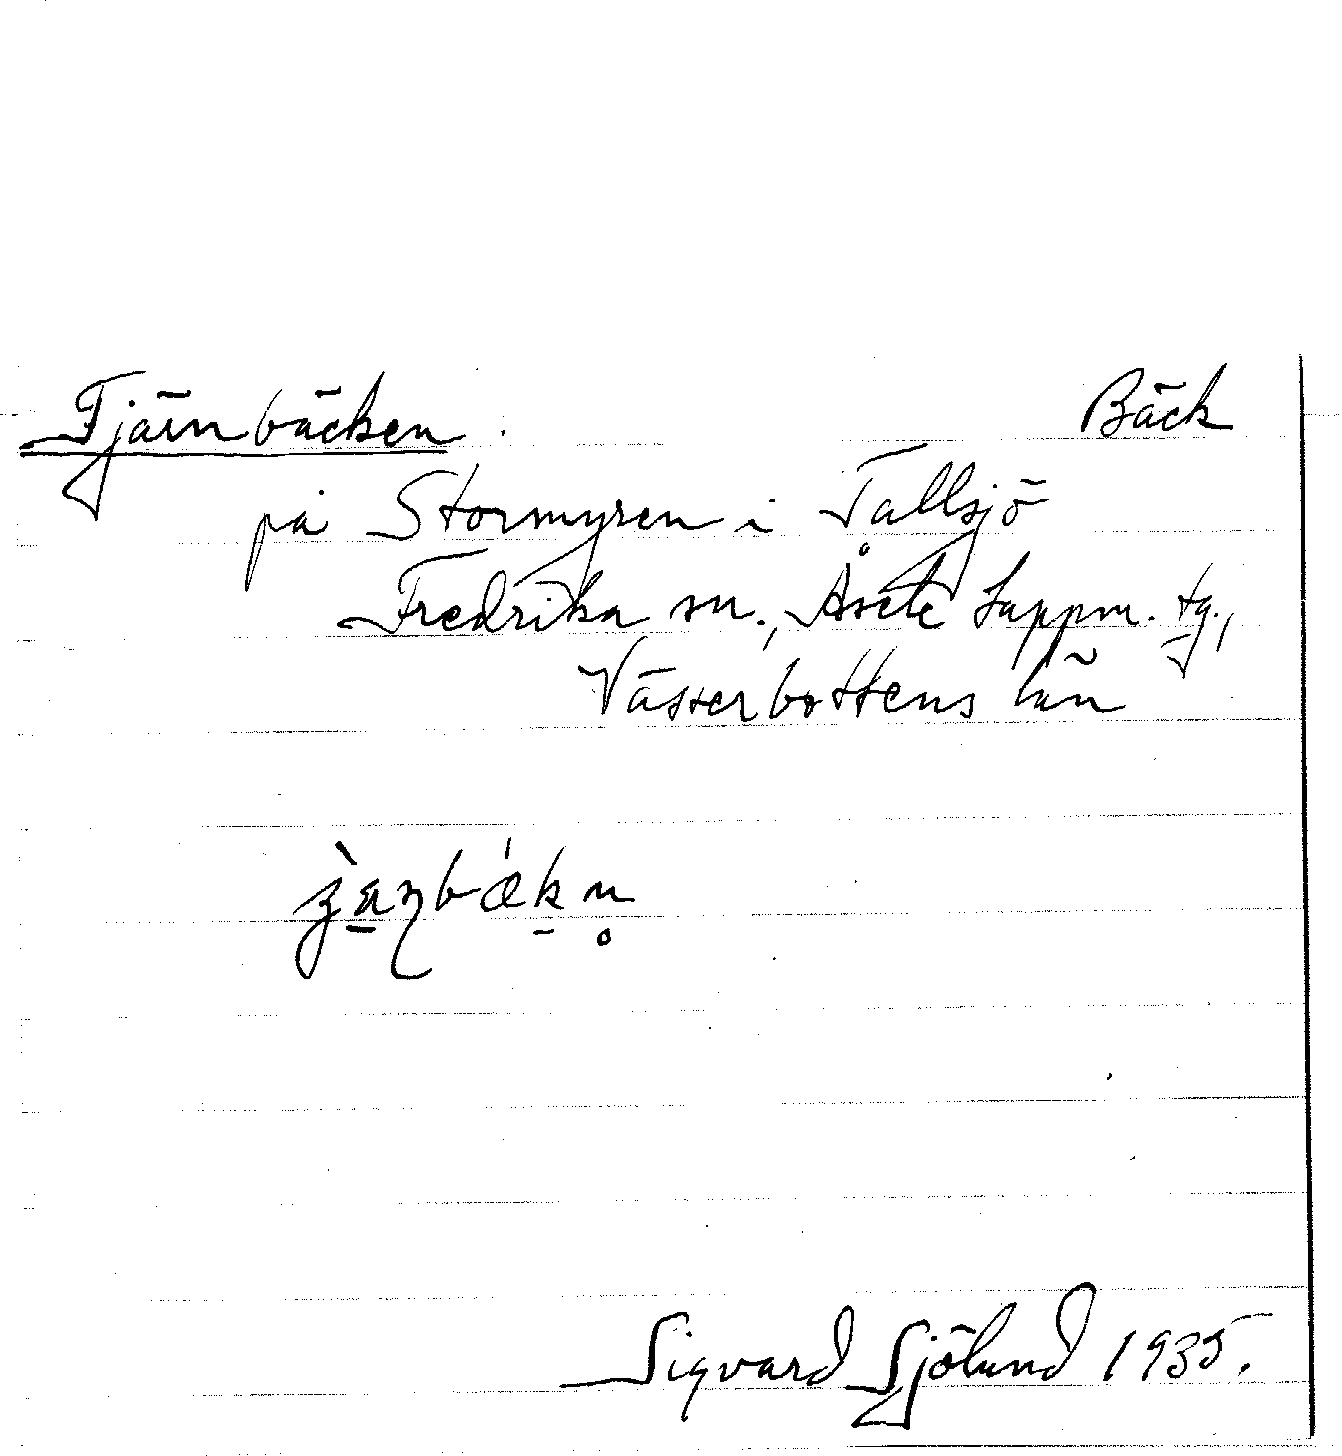 Tjärnbäcken. Bäck
på Stormyren i Tallsjö
Fredrika sn., Åsele Lappm. tg.,
Västerbottens län
Sigvard Sjölund 1935.